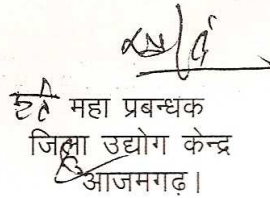 महा प्रबन्धक
जिला उद्योग केन्द्र
आजमगढ़।